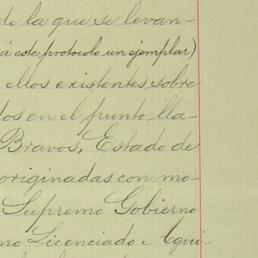 de la que se levan-
á este protocolo un ejemplar)
ellos existentes sobre
dos en el punto lla-
Bravos, Estado de
originadas con mo-
Supremo Gobierno
no Licenciado Aqui